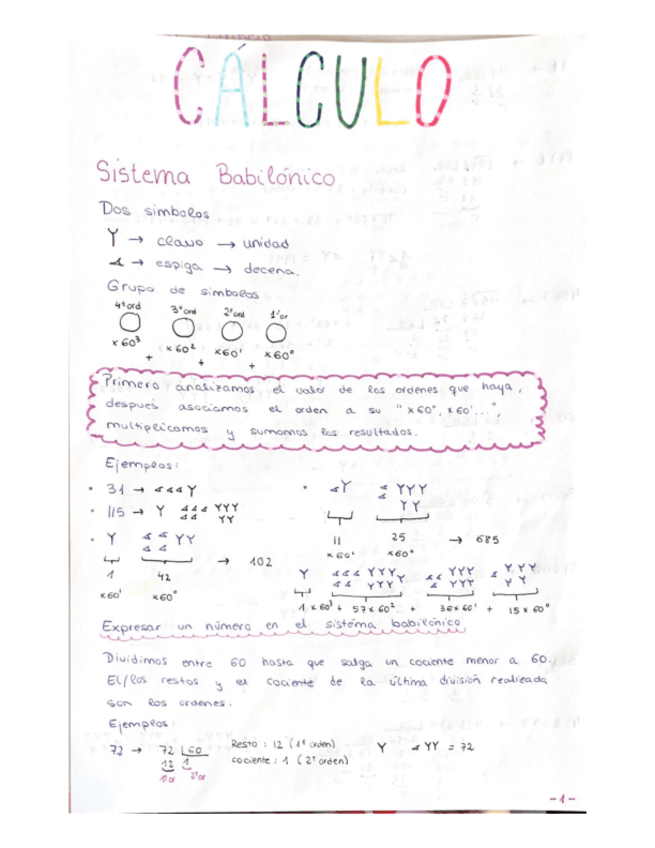 CÁLCULO
Sistema Babilónico
Dos símbolos
Y → clavo → unidad
→ espiga → decena.
Grupo de símbolos
4º ord 3º ord 2º ord 1º or
x 60³ + x 60² + x 60¹ + x 60⁰
Primero analizamos el valor de los ordenes que haya,
después asociamos el orden a su "x 60⁰, x 60¹...",
multiplicamos y sumamos los resultados.
Ejemplos:
• 31 →
• 115 →
1 42 → 102
x60¹ x60⁰
11 25 → 685
x 60¹ x60⁰
1 x 60³ + 57 x 60² + 36 x 60¹ + 15 x 60⁰
Expresar un número en el sistema babilónico
Dividimos entre 60 hasta que salga un cociente menor a 60.
El/los restos y el cociente de la última división realizada
son los ordenes.
Ejemplos:
72 → 72 60
12 1
1º or 2º or
Resto: 12 (1º orden)
cociente: 1 (2º orden)
= 72
-1-